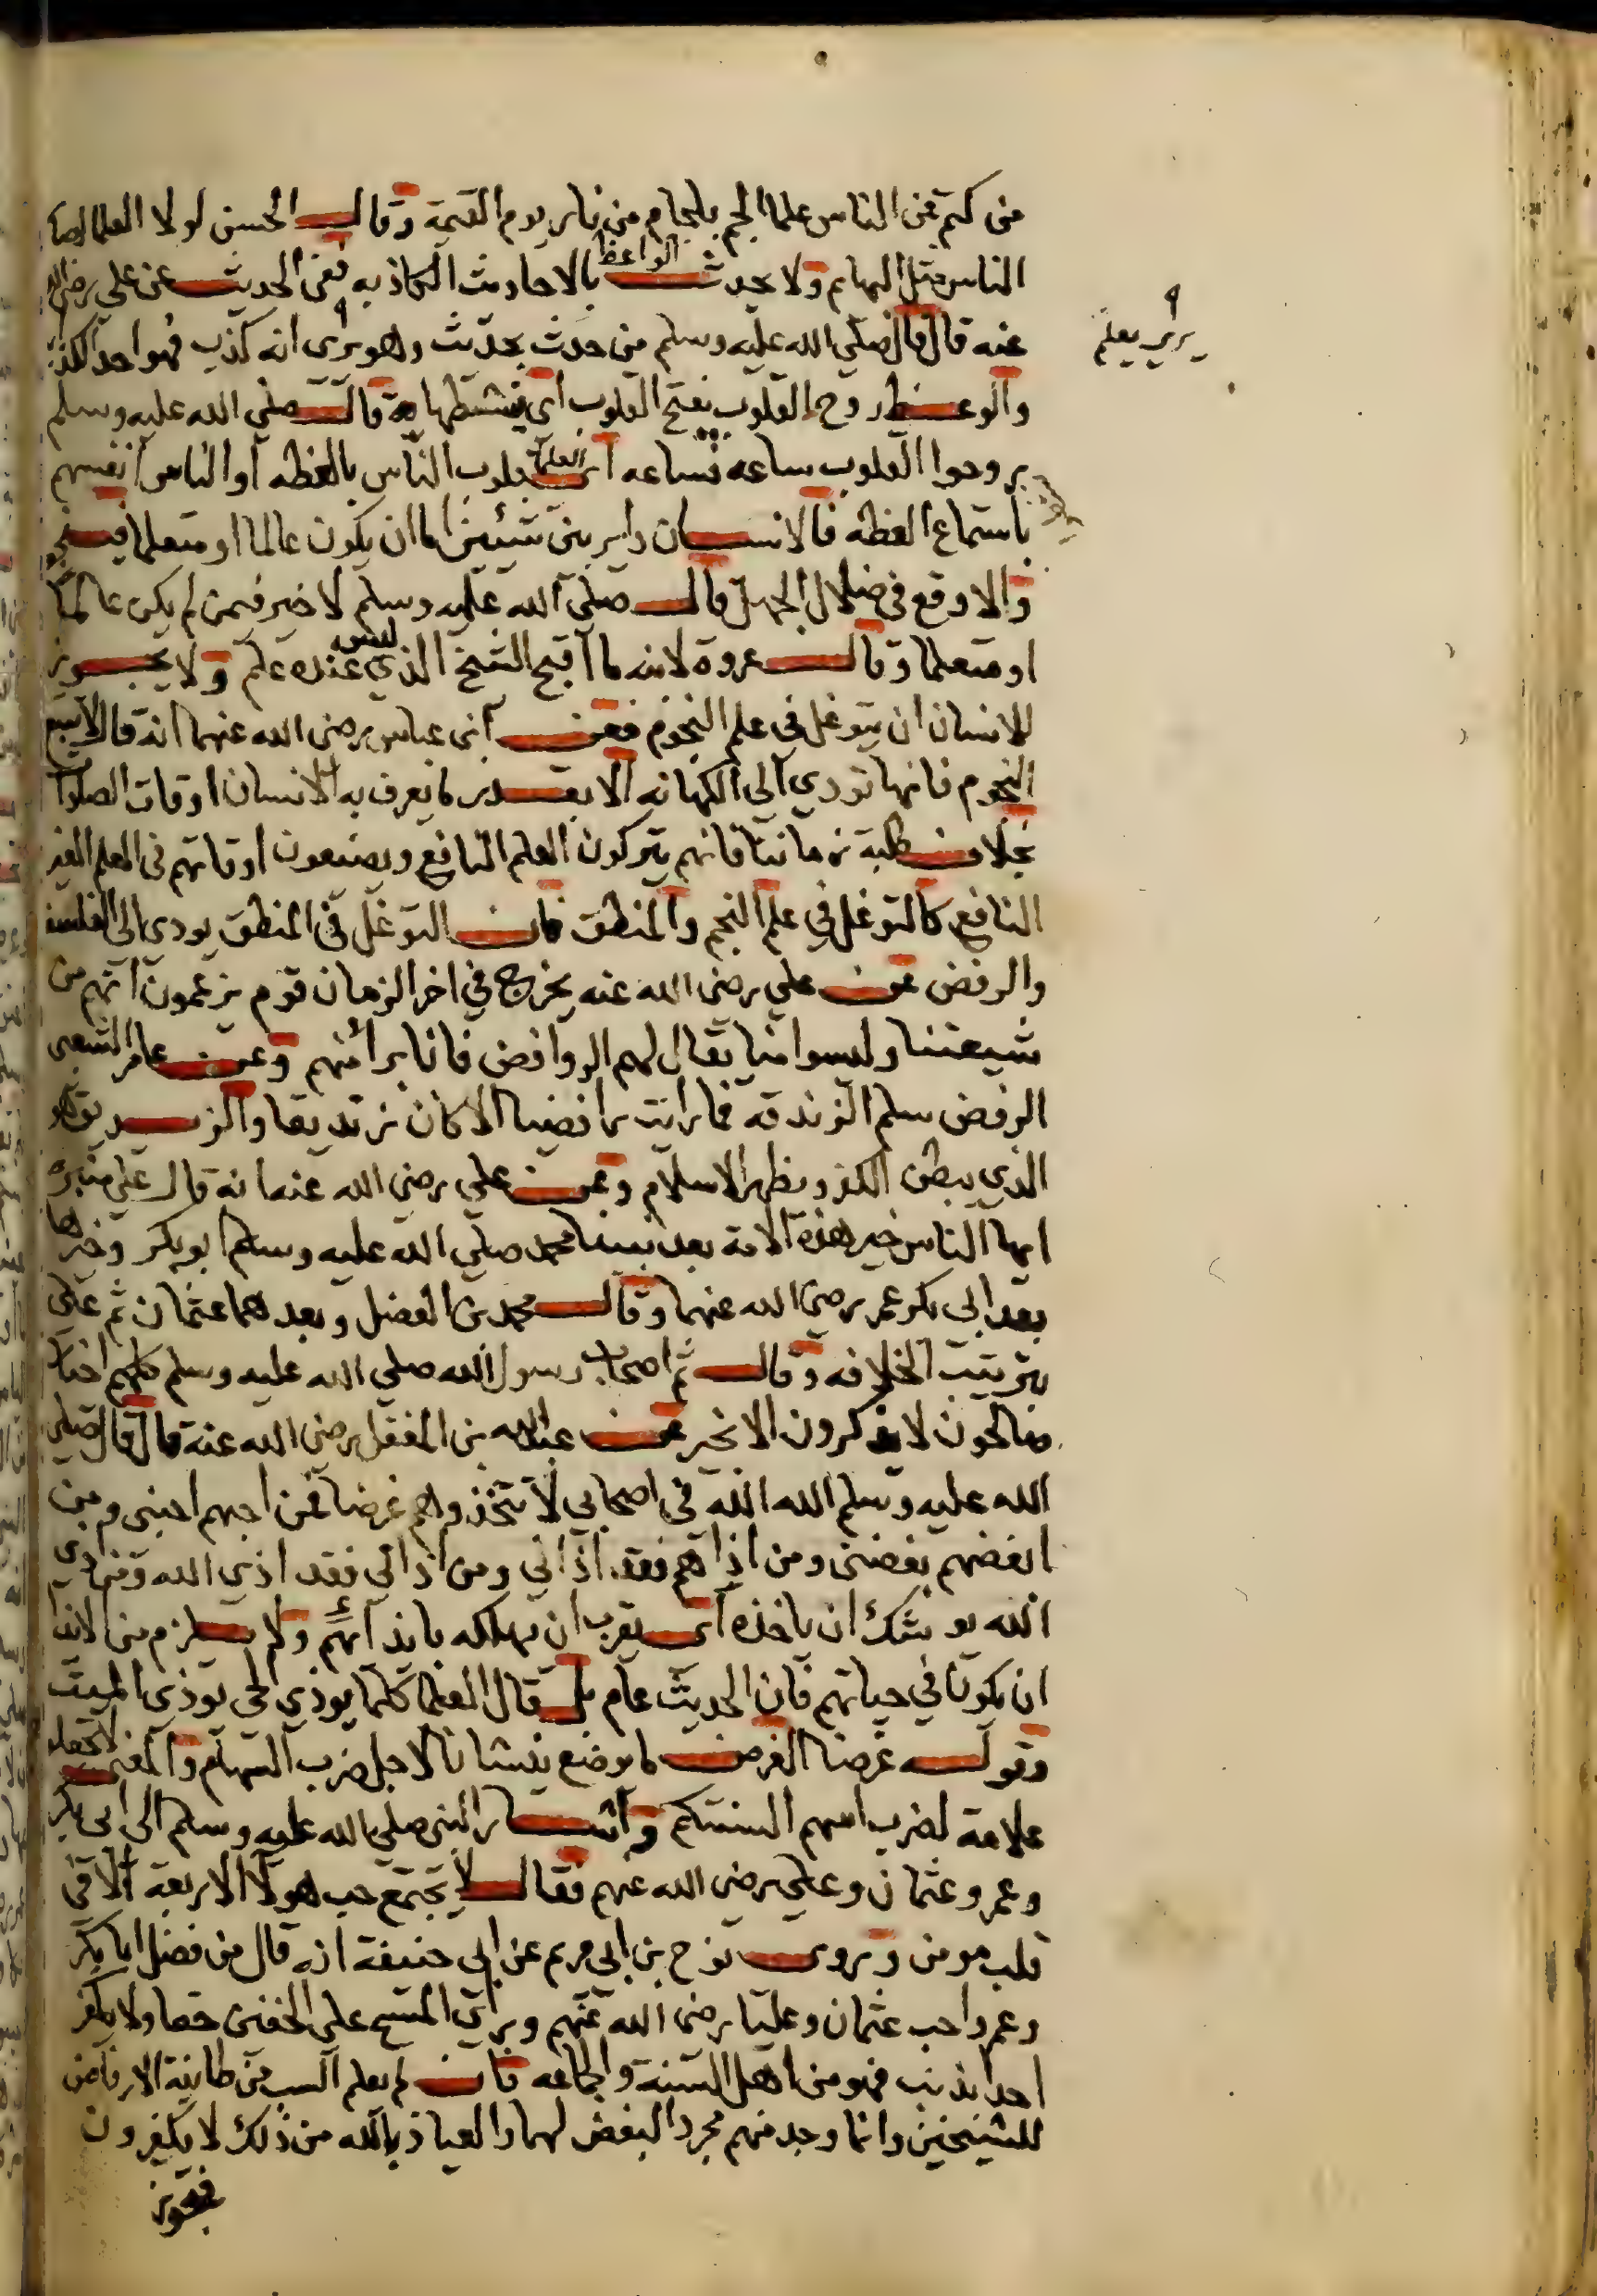 من كتم عن الناس علما الجم بلجام من نار يوم القيمة وقال الحسن لولا العلما لصار
الناس مثل البهايم ولا يحدث الواعظ بالاحاديث الكاذبه ففى الحديث عن علي رضى الله
عنه قال قال صلي الله عليه وسلم من حدث بحديث وهو يرى انه كذب فهو احد الكذ
يرى يعلم
والوعظ روح القلوب بفتح القلوب اى ينشطها به قال صلي الله عليه وسلم
روحوا القلوب ساعه فساعه اى العلما قلوب الناس بالعظه او الناس انفسهم
باستماع العظه فالانسان داير بين شيئين اما ان يكون عالما او متعلما فينجو
والا وقع في ضلال الجهل قال صلي الله عليه وسلم لا خير فيمن لم يكن عالما
او متعلما وقال عروة لابنه ما اقبح الشيخ الذي ليس عنده علم ولا يجوز
للانسان ان يتوغل في علم النجوم فعن ابن عباس رضى الله عنهما انه قال لا تتبع
النجوم فانها تودي الي الكهانه الا بقدر ما يعرف به الانسان اوقات الصلوا
بخلاف طلبة زماننا فانهم يتركون العلم النافع ويضيعون اوقاتهم في العلم الغير
النافع كالتوغل في علم النجم والمنطق فان التوغل في المنطق يودي الى الفلسفه
والرفض عن علي رضى الله عنه يخرج في اخر الزمان قوم يزعمون انهم من
شيعتنا وليسوا منا يقال لهم الروافض فانا برأ منهم وعن عامر الشعبى
الرفض سلم الزندقه فما رايت رافضيا الا كان زنديقا والزنديق هو
الذي يبطن الكفر ويظهر الاسلام وعن علي رضى الله عنه انه قال علي منبره
ايها الناس خير هذه الامة بعد نبينا محمد صلي الله عليه وسلم ابو بكر وخيرها
بعد ابي بكر عمر رضى الله عنهما وقال محمد بن الفضل وبعدهما عثمان ثم علي
بترتيب الخلافه وقال ثم اصحاب رسول الله صلي الله عليه وسلم كلهم اخيار
صالحون لا يذكرون الا بخير عن عبد الله بن المغفل رضى الله عنه قال قال صلي
الله عليه وسلم الله الله في اصحابي لا تتخذوهم غرضا فمن احبهم احبنى ومن
ابغضهم بغضنى ومن اذاهم فقد اذاني ومن اذاني فقد اذي الله ومن اذي
الله يوشك ان ياخذه اى يقرب ان يهلكه بايذائهم ولا يلزم من الايذا
ان يكون في حياتهم فان الحديث عام بل قال العلما كلما يوذي الحى يوذي الميت
وقوله غرضا الغرض ما يوضع نيشانا لاجل ضرب السهام والمعنى لا تجعلو
علامة لضرب اسهم السنتكم واشار النبى صلي الله عليه وسلم الى ابى بكر
وعمر وعثمان وعلى رضى الله عنهم فقال لا يجتمع حب هولا الاربعة الا في
قلب مومن وروى نوح بن ابي مريم عن ابي حنيفة انه قال من فضل ابا بكر
وعمر واحب عثمان وعليا رضى الله عنهم وبراى المسح على الخفين حقا ولا يكفر
احدا بذنب فهو من اهل السنة والجماعه فان لم يعلم السب من طايفة الارفاض
للشيخين وانما وجد منهم مجرد البغض لهما والعياذ بالله من ذلك لا يكفرون
فقوز